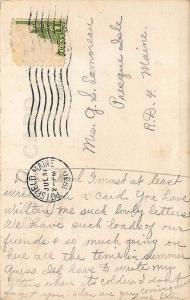 Mrs. G. S. Lamoreau
Presque Isle
R.D. 4. Maine.
MAINE
JUL 30
2-PM
I must at least
write a Card. You have
written me such lovely letters
We have such loads of our
friends & so much going on
here all the time in summer
Guess I'll have to write my
letters when its colder. I don't